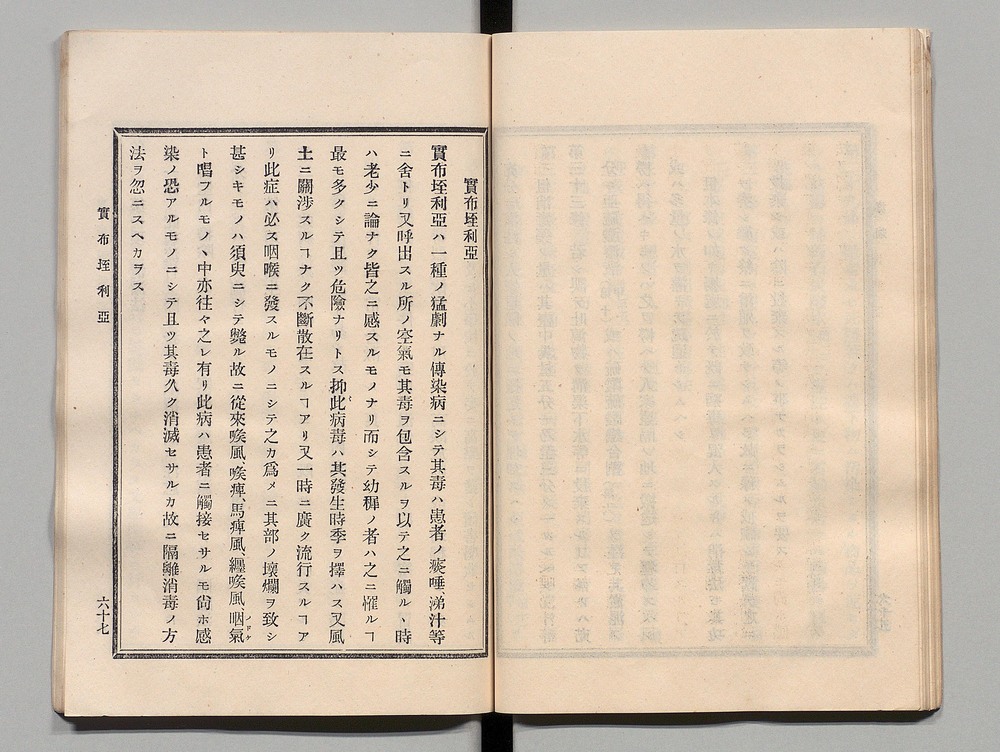 實布垤利亞
實布垤利亞ハ一種ノ猛劇ナル傳染病ニシテ其毒ハ患者ノ痰唾、涕汁等
ニ舍トリ又呼出スル所ノ空氣モ其毒ヲ包含スルヲ以テ之ニ觸ルヽ時
ハ老少ニ論ナク皆之ニ感スルモノナリ而シテ幼穉ノ者ハ之ニ罹ルヿ
最モ多クシテ且ツ危險ナリトス抑此病毒ハ其發生時季ヲ擇ハス又風
土ニ關渉スルヿナク不斷散在スルヿアリ又一時ニ廣ク流行スルヿア
リ此症ハ必ス咽喉ニ發スルモノニシテ之カ爲メニ其部ノ壞爛ヲ致シ
甚シキモノハ須臾ニシテ斃ル故ニ從來喉風、喉痺、馬痺風、纏喉風、咽氣
ノドケ
ト唱フルモノヽ中亦往々之レ有リ此病ハ患者ニ觸接セサルモ尙ホ感
染ノ恐アルモノニシテ且ツ其毒久ク消滅セサルカ故ニ隔離消毒ノ方
法ヲ忽ニスヘカラス
實布垤利亞
六十七